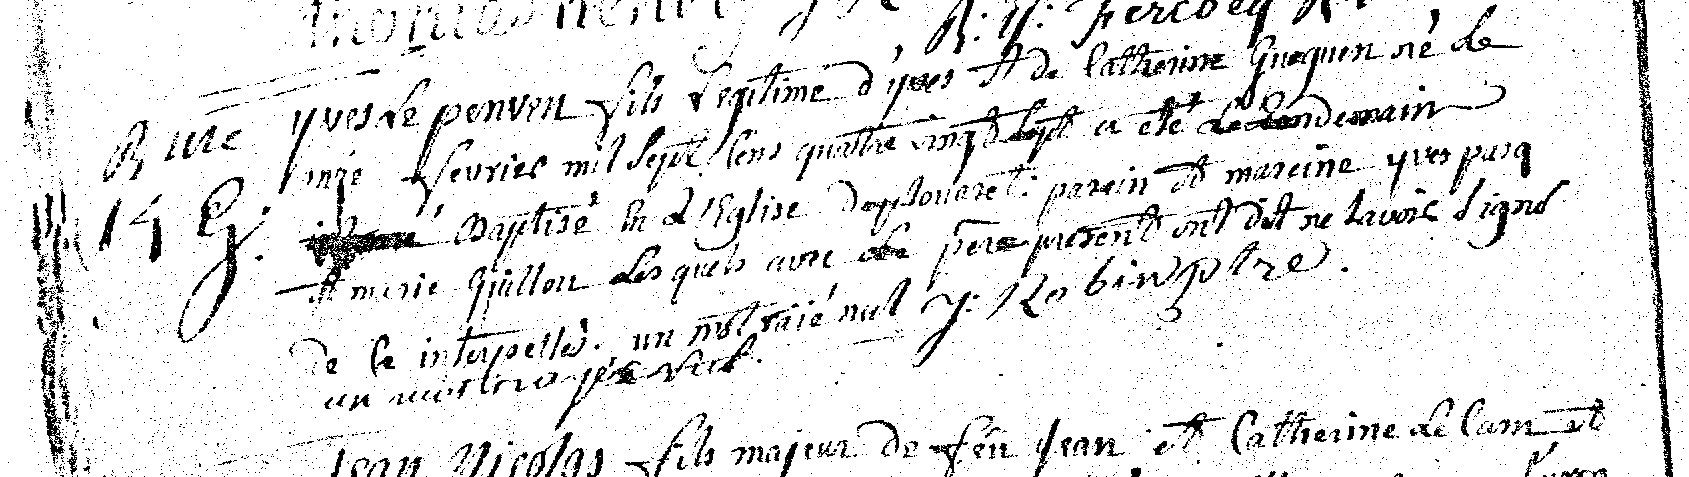 yves Le penven fils Legitime d'yves Et de Catherine Gueguen né Le
B une
fevrier mil Sept Cens quattre vingt Sept a eté Le Lendemain
Baptisé En L'Eglise De plouaret: parein Et mareine yves pasq
14 G.
Et marie Guillou Les quels avec Le pere present ont dit ne Savoir Signé
de Ce interpellés. un mot raié nul y: Robin ptre.
un mot
Jean Nicolas fils majeur de feu Jean et Catherine Le Cam et